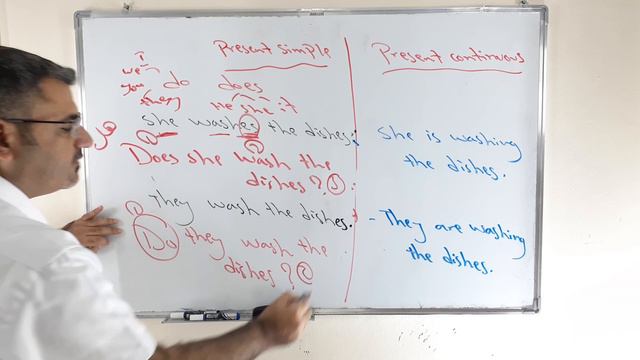 Present simple
I
we
you do does
they He she it
هل she washes the dishes.
① ②
Does she wash the
dishes? ③
They wash the dishes.
①
Do they wash the
dishes? ②
Present continuous
She is washing
the dishes.
- They are washing
the dishes.